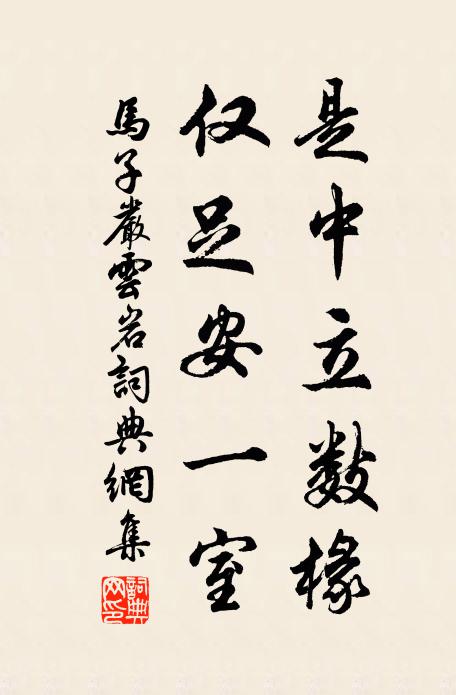 是中立数椽
仅足安一室
馬子嚴雲岩詞典網集
詞典
网印